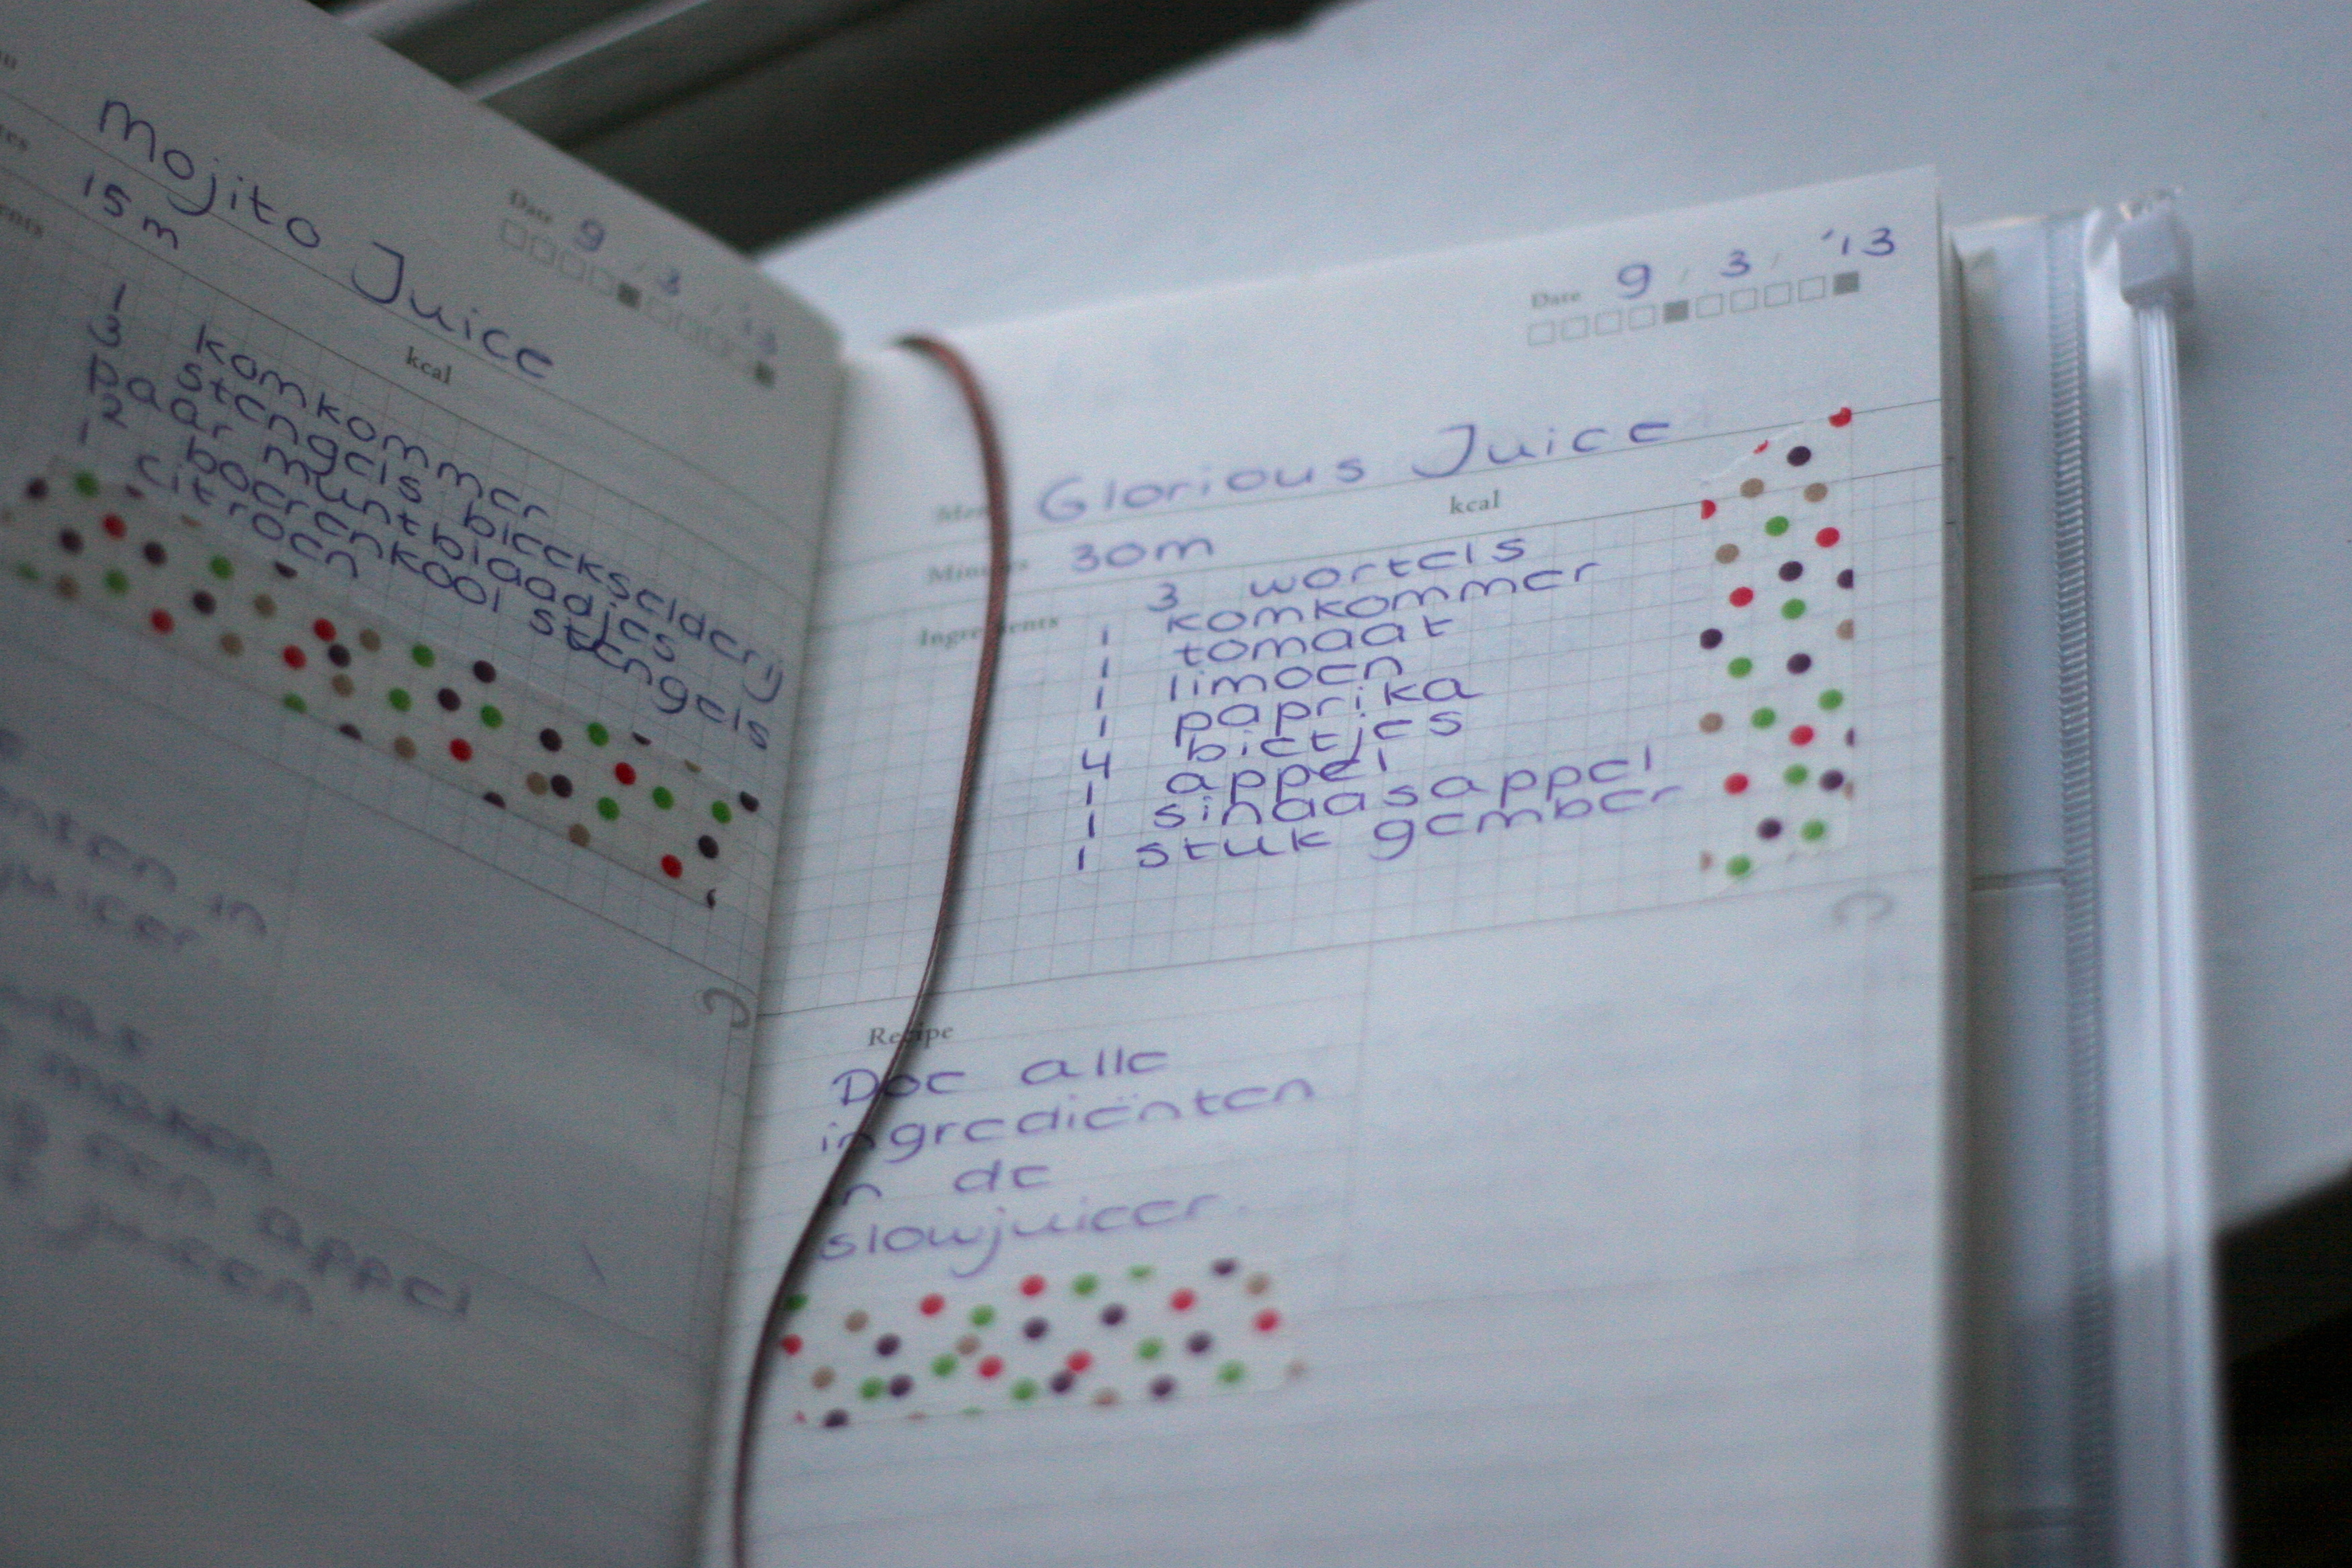 Date 9 / 3 / '13
Mojito Juice
15 m
kcal
1 komkommer
3 stengels bleekselderij
paar muntblaadjes
2 boerenkool stengels
1 citroen
in
juicer
maken
een appel
Date 9 / 3 / '13
Menu Glorious Juice
Minutes 30m kcal
Ingredients
3 wortels
1 komkommer
1 tomaat
1 limoen
1 paprika
4 bietjes
1 appel
1 sinaasappel
1 stuk gember
Recipe
Doe alle
ingrediënten
in de
slowjuicer.